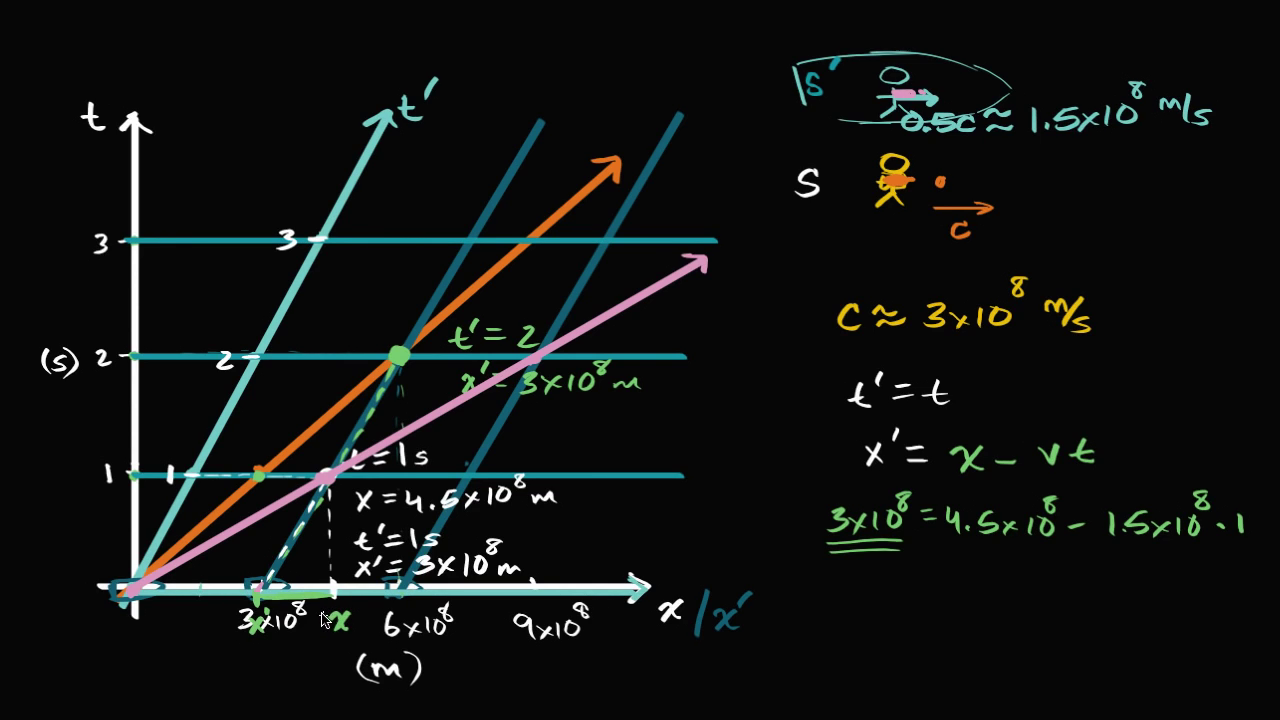 t
t′
3
3
(s)
2
2
1
1
t′ = 2
x′ = 3×10⁸ m
t = 1s
x = 4.5×10⁸ m
t′ = 1s
x′ = 3×10⁸ m
3×10⁸
x′
x
6×10⁸
9×10⁸
x / x′
(m)
S′
0.5c ≈ 1.5×10⁸ m/s
S
c
c ≈ 3×10⁸ m/s
t′ = t
x′ = x − vt
3×10⁸ = 4.5×10⁸ − 1.5×10⁸ · 1